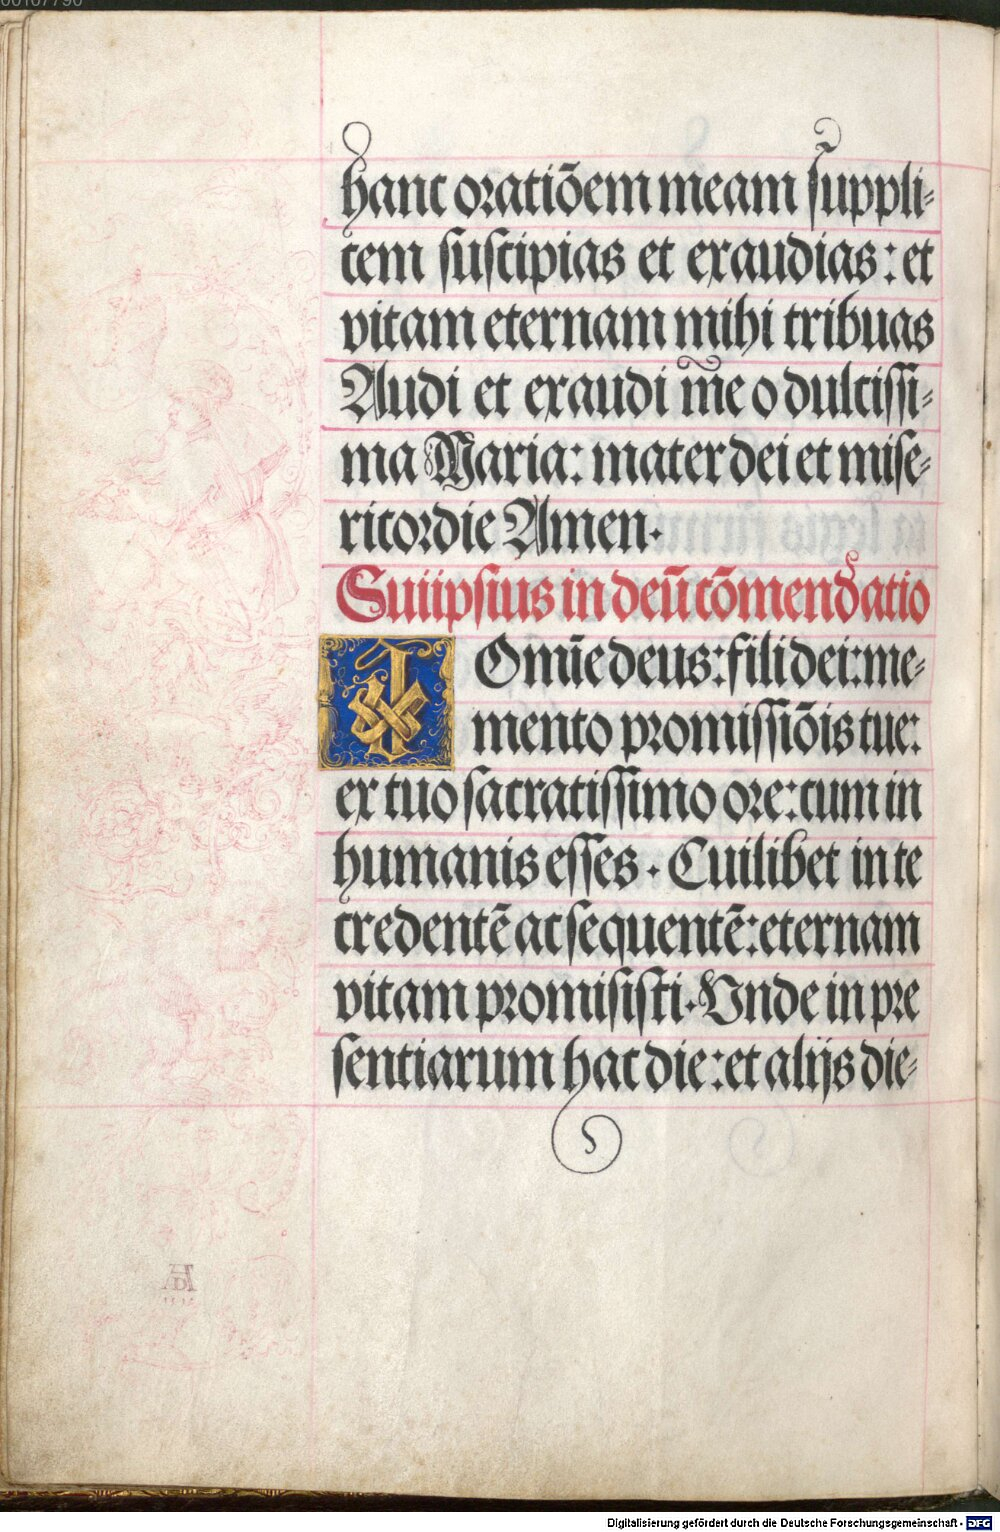 00107790
hanc oratiõem meam suppli-
cem suscipias et exaudias: et
vitam eternam mihi tribuas
Audi et exaudi me o dulcissi-
ma Maria: mater dei et mise-
ricordie Amen.
Suiipsius in deū cõmendatio
Omīe deus: fili dei: me-
mento promissiõis tue:
ex tuo sacratissimo ore: cum in
humanis esses. Cuilibet in te
credentē ac sequentē: eternam
vitam promisisti. Unde in pre
sentiarum hac die: et alijs die-
Digitalisierung gefördert durch die Deutsche Forschungsgemeinschaft - DFG